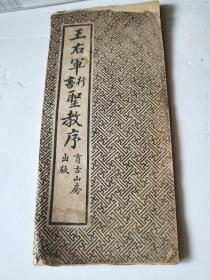 王右軍行書聖教序
育古山房
出版